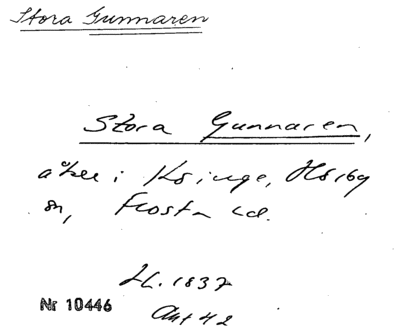 Stora Gunnaren
Stora Gunnaren,
åker i Ksinge, Höiby
sn, Frosta hd.
H. 1837
Nr 10446
Akt 42